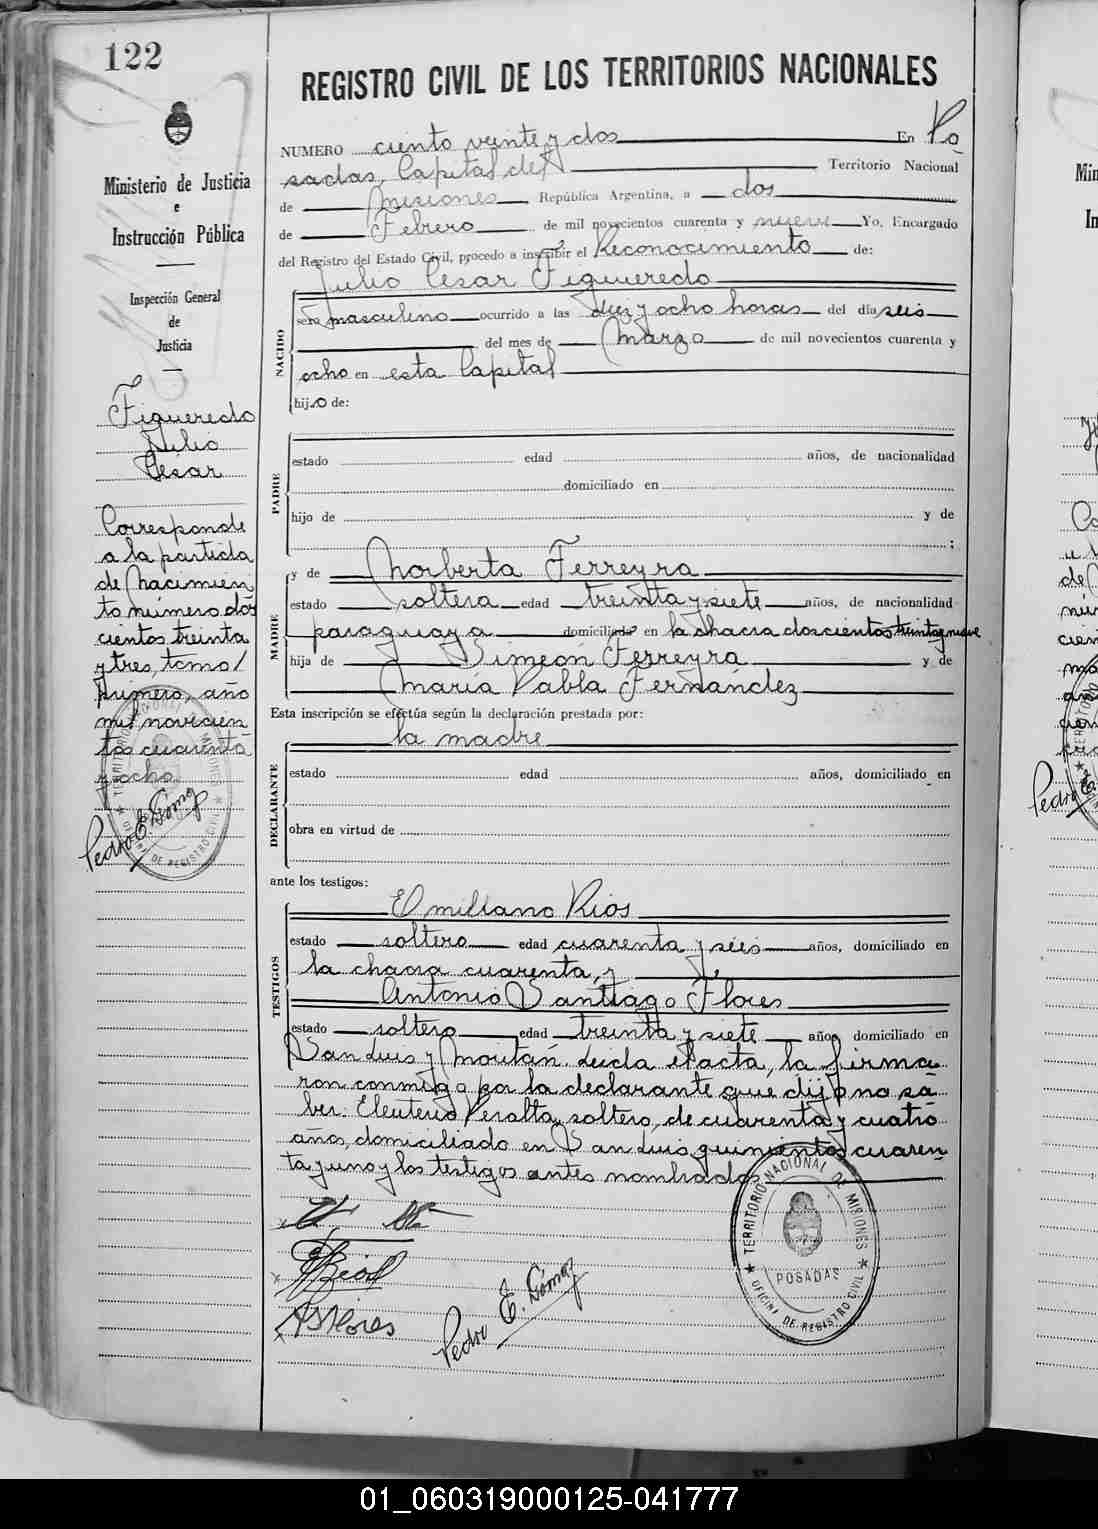 122
Ministerio de Justicia
e
Instrucción Pública
Inspección General
de
Justicia
Figueredo
Julio
César
Corresponde
a la partida
de Nacimien
to número dos
cientos treinta
y tres, tomo
primero, año
mil novecien
tos cuarenta
y ocho
Pedro E. Gómez
REGISTRO CIVIL DE LOS TERRITORIOS NACIONALES
NUMERO ciento veinte y dos En Po
sadas, Capital del Territorio Nacional
de Misiones República Argentina, a dos
de Febrero de mil novecientos cuarenta y nueve Yo, Encargado
del Registro del Estado Civil, procedo a inscribir el Reconocimiento de:
Julio Cesar Figueredo
NACIDO
sexo masculino ocurrido a las diez y ocho horas del día seis
del mes de Marzo de mil novecientos cuarenta y
ocho en esta Capital
hijo de:
PADRE
estado edad años, de nacionalidad
domiciliado en
hijo de y de
;
MADRE
y de Norberta Ferreyra
estado soltera edad treinta y siete años, de nacionalidad
paraguaya domiciliada en la chacra doscientos treinta y nueve
hija de Simeón Ferreyra y de
María Pabla Fernández
Esta inscripción se efectúa según la declaración prestada por:
la madre
DECLARANTE
estado edad años, domiciliado en
obra en virtud de
ante los testigos:
TESTIGOS
Emiliano Rios
estado soltero edad cuarenta y seis años, domiciliado en
la chacra cuarenta, y
Antonio Santiago Flores
estado soltero edad treinta y siete años, domiciliado en
San Luis y Moritán. Leída el acta, la firma
ron conmigo por la declarante que dijo no sa
ber: Eleuterio Peralta, soltero, de cuarenta y cuatro
años, domiciliado en San Luis quinientos cuaren
ta y uno y los testigos antes nombrados
ERios
ASFlores
Pedro E. Gómez
TERRITORIO NACIONAL DE MISIONES
POSADAS
OFICINA DE REGISTRO CIVIL
01_060319000125-041777